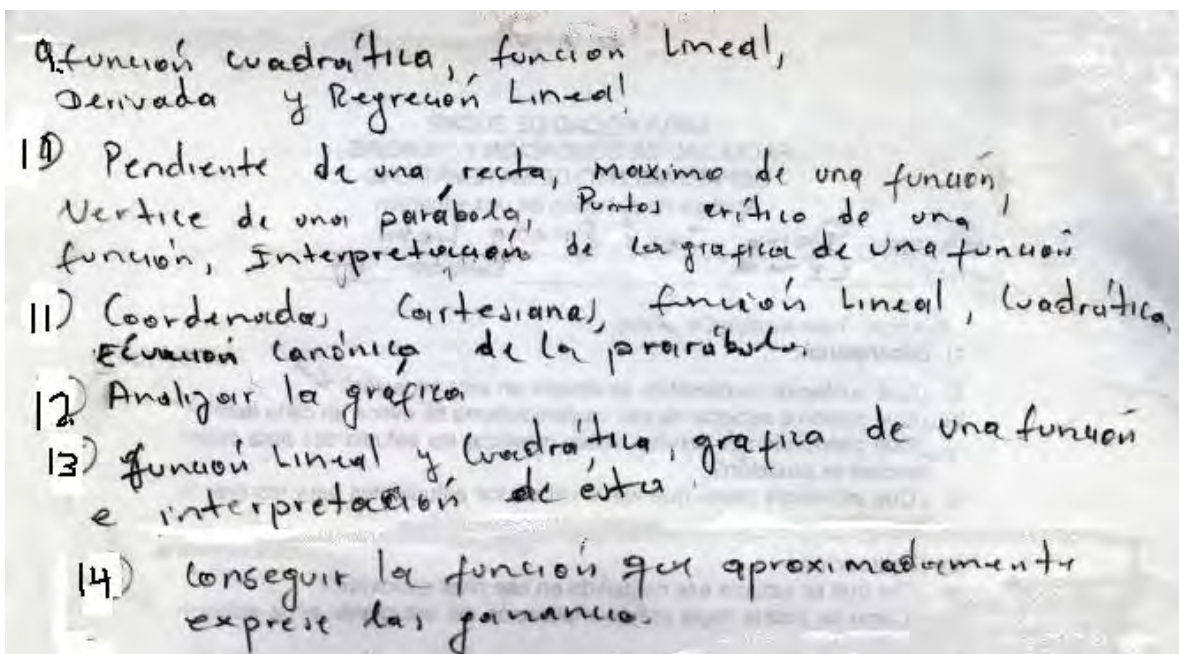 9. función cuadrática, función Lineal,
Derivada y Regreción Lineal
10) Pendiente de una recta, maximo de una función,
Vertice de una parábola, Puntos crítico de una
función, Interpretación de la grafica de una función
11) Coordenadas Cartesianas, función Lineal, Cuadrática,
Ecuación canónica de la prarábola.
12) Analizar la gráfica
13) función Lineal y Cuadrática, grafica de una función
e interpretación de ésta.
14) Conseguir la función que aproximadamente
exprese las ganancias.